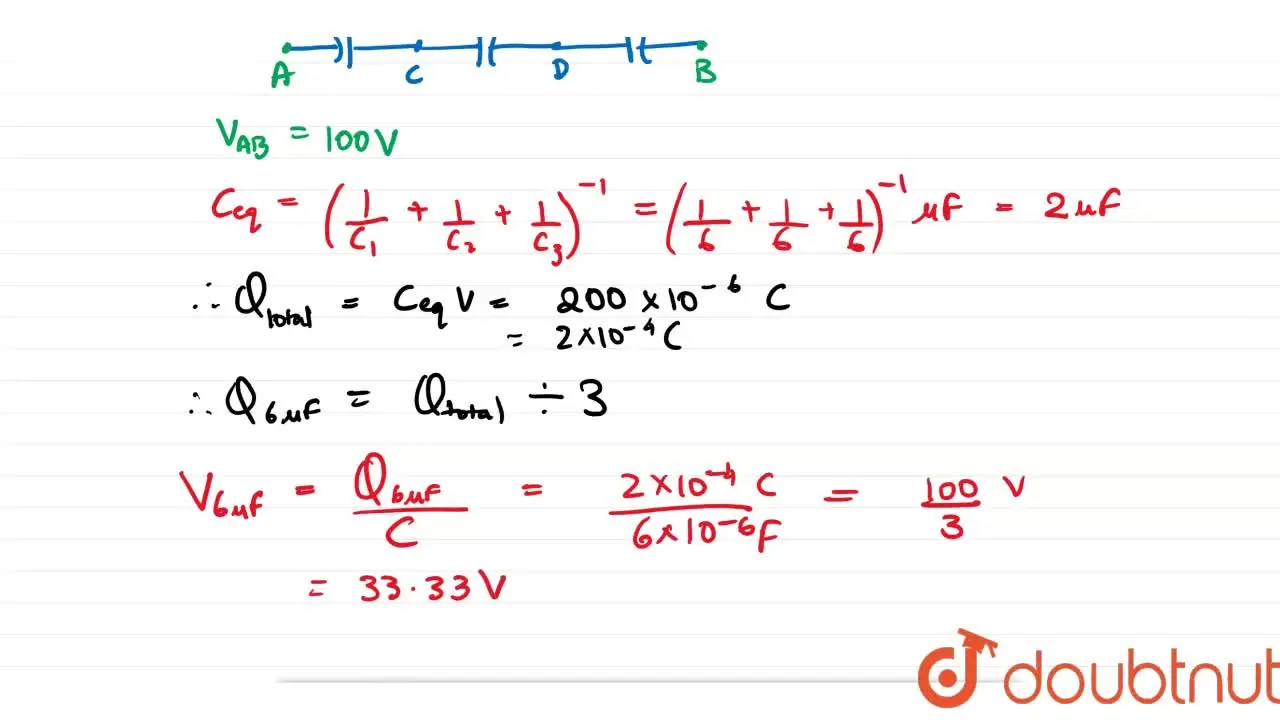 A C D B
V_AB = 100 V
Ceq = (1/C₁ + 1/C₂ + 1/C₃)⁻¹ = (1/6 + 1/6 + 1/6)⁻¹ μF = 2 μF
∴ Q_total = Ceq V = 200 × 10⁻⁶ C
= 2 × 10⁻⁴ C
∴ Q_6μF = Q_total ÷ 3
V_6μF = Q_6μF / C = 2 × 10⁻⁴ C / 6 × 10⁻⁶ F = 100/3 V
= 33.33 V
doubtnut